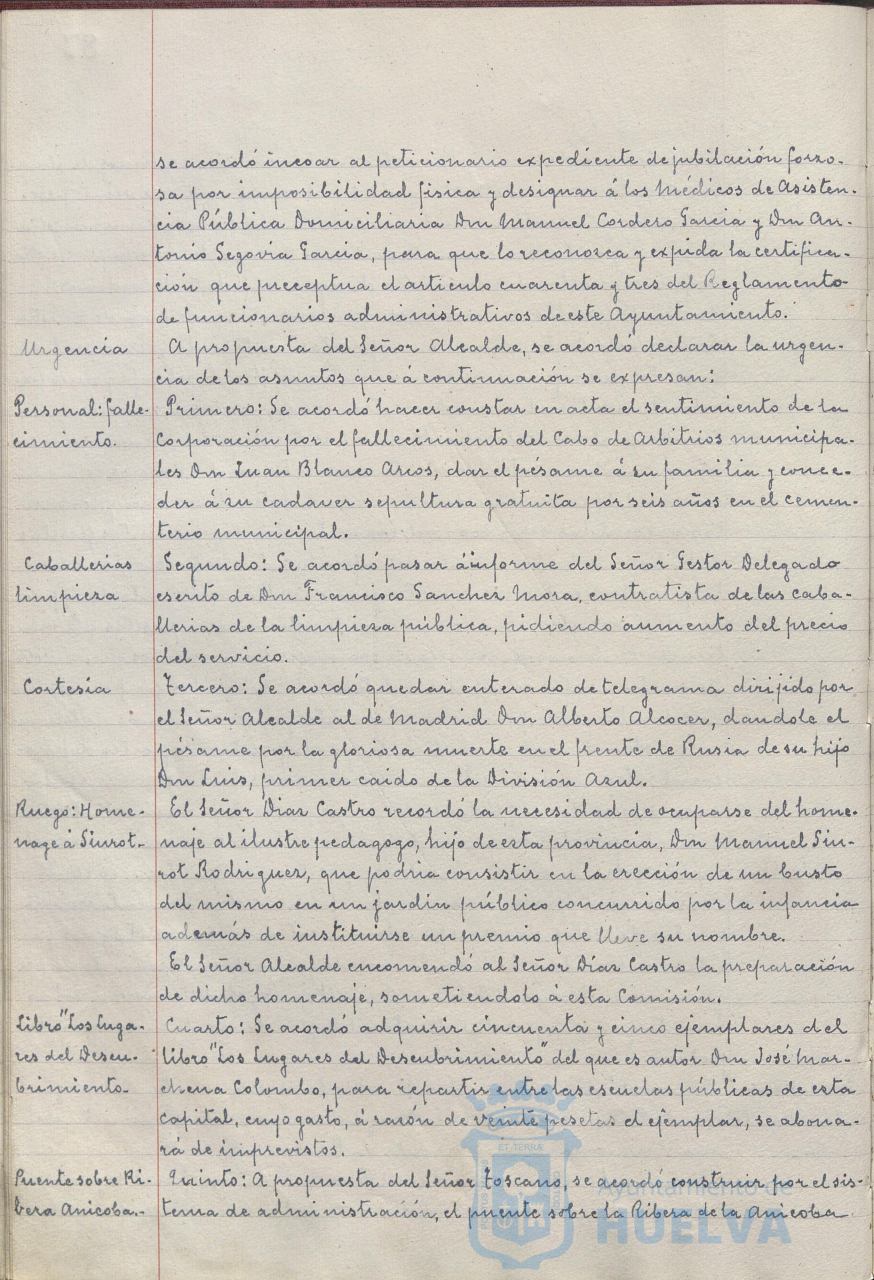 se acordó incoar al peticionario expediente de jubilación forzo-
sa por imposibilidad fisica y designar á los Médicos de Asisten-
cia Pública Domiciliaria Don Manuel Cordero Garcia y Don An-
tonio Segovia Garcia, para que lo reconozca y expida la certifica-
ción que preceptua el articulo cuarenta y tres del Reglamento
de funcionarios administrativos de este Ayuntamiento.
Urgencia
A propuesta del Señor Alcalde, se acordó declarar la urgen-
cia de los asuntos que á continuación se expresan:
Personal: falle-
cimiento.
Primero: Se acordó hacer constar en acta el sentimiento de la
Corporación por el fallecimiento del Cabo de Arbitrios municipa-
les Don Juan Blanco Arcos, dar el pésame á su familia y conce-
der á su cadaver sepultura gratuita por seis años en el cemen-
terio municipal.
Caballerias
limpieza
Segundo: Se acordó pasar á informe del Señor Gestor Delegado
escrito de Don Francisco Sanchez Mora, contratista de las caba-
llerias de la limpieza pública, pidiendo aumento del precio
del servicio.
Cortesía
Tercero: Se acordó quedar enterado de telegrama dirijido por
el Señor Alcalde al de Madrid Don Alberto Alcocer, dandole el
pésame por la gloriosa muerte en el frente de Rusia de su hijo
Don Luis, primer caido de la División Azul.
Ruego: Home-
nage á Siurot.-
El Señor Diaz Castro recordó la necesidad de ocuparse del home-
naje al ilustre pedagogo, hijo de esta provincia, Don Manuel Siu-
rot Rodriguez, que podria consistir en la erección de un busto
del mismo en un jardin público concurrido por la infancia
además de instituirse un premio que lleve su nombre.
El Señor Alcalde encomendó al Señor Díaz Castro la preparación
de dicho homenaje, sometiendolo á esta Comisión.
Libro "Los Luga-
res del Descu-
brimiento.-
Cuarto: Se acordó adquirir cincuenta y cinco ejemplares del
libro "Los Lugares del Descubrimiento" del que es autor Don José Mar-
chena Colombo, para repartir entre las escuelas públicas de esta
capital, cuyo gasto, á razón de veinte pesetas el ejemplar, se abona-
rá de imprevistos.
Puente sobre Ri-
bera Anicoba.-
Quinto: A propuesta del Señor Toscano, se acordó construir por el sis-
tema de administración, el puente sobre la Ribera de la Anicoba
ET TERRÆ
Ayuntamiento de
HUELVA